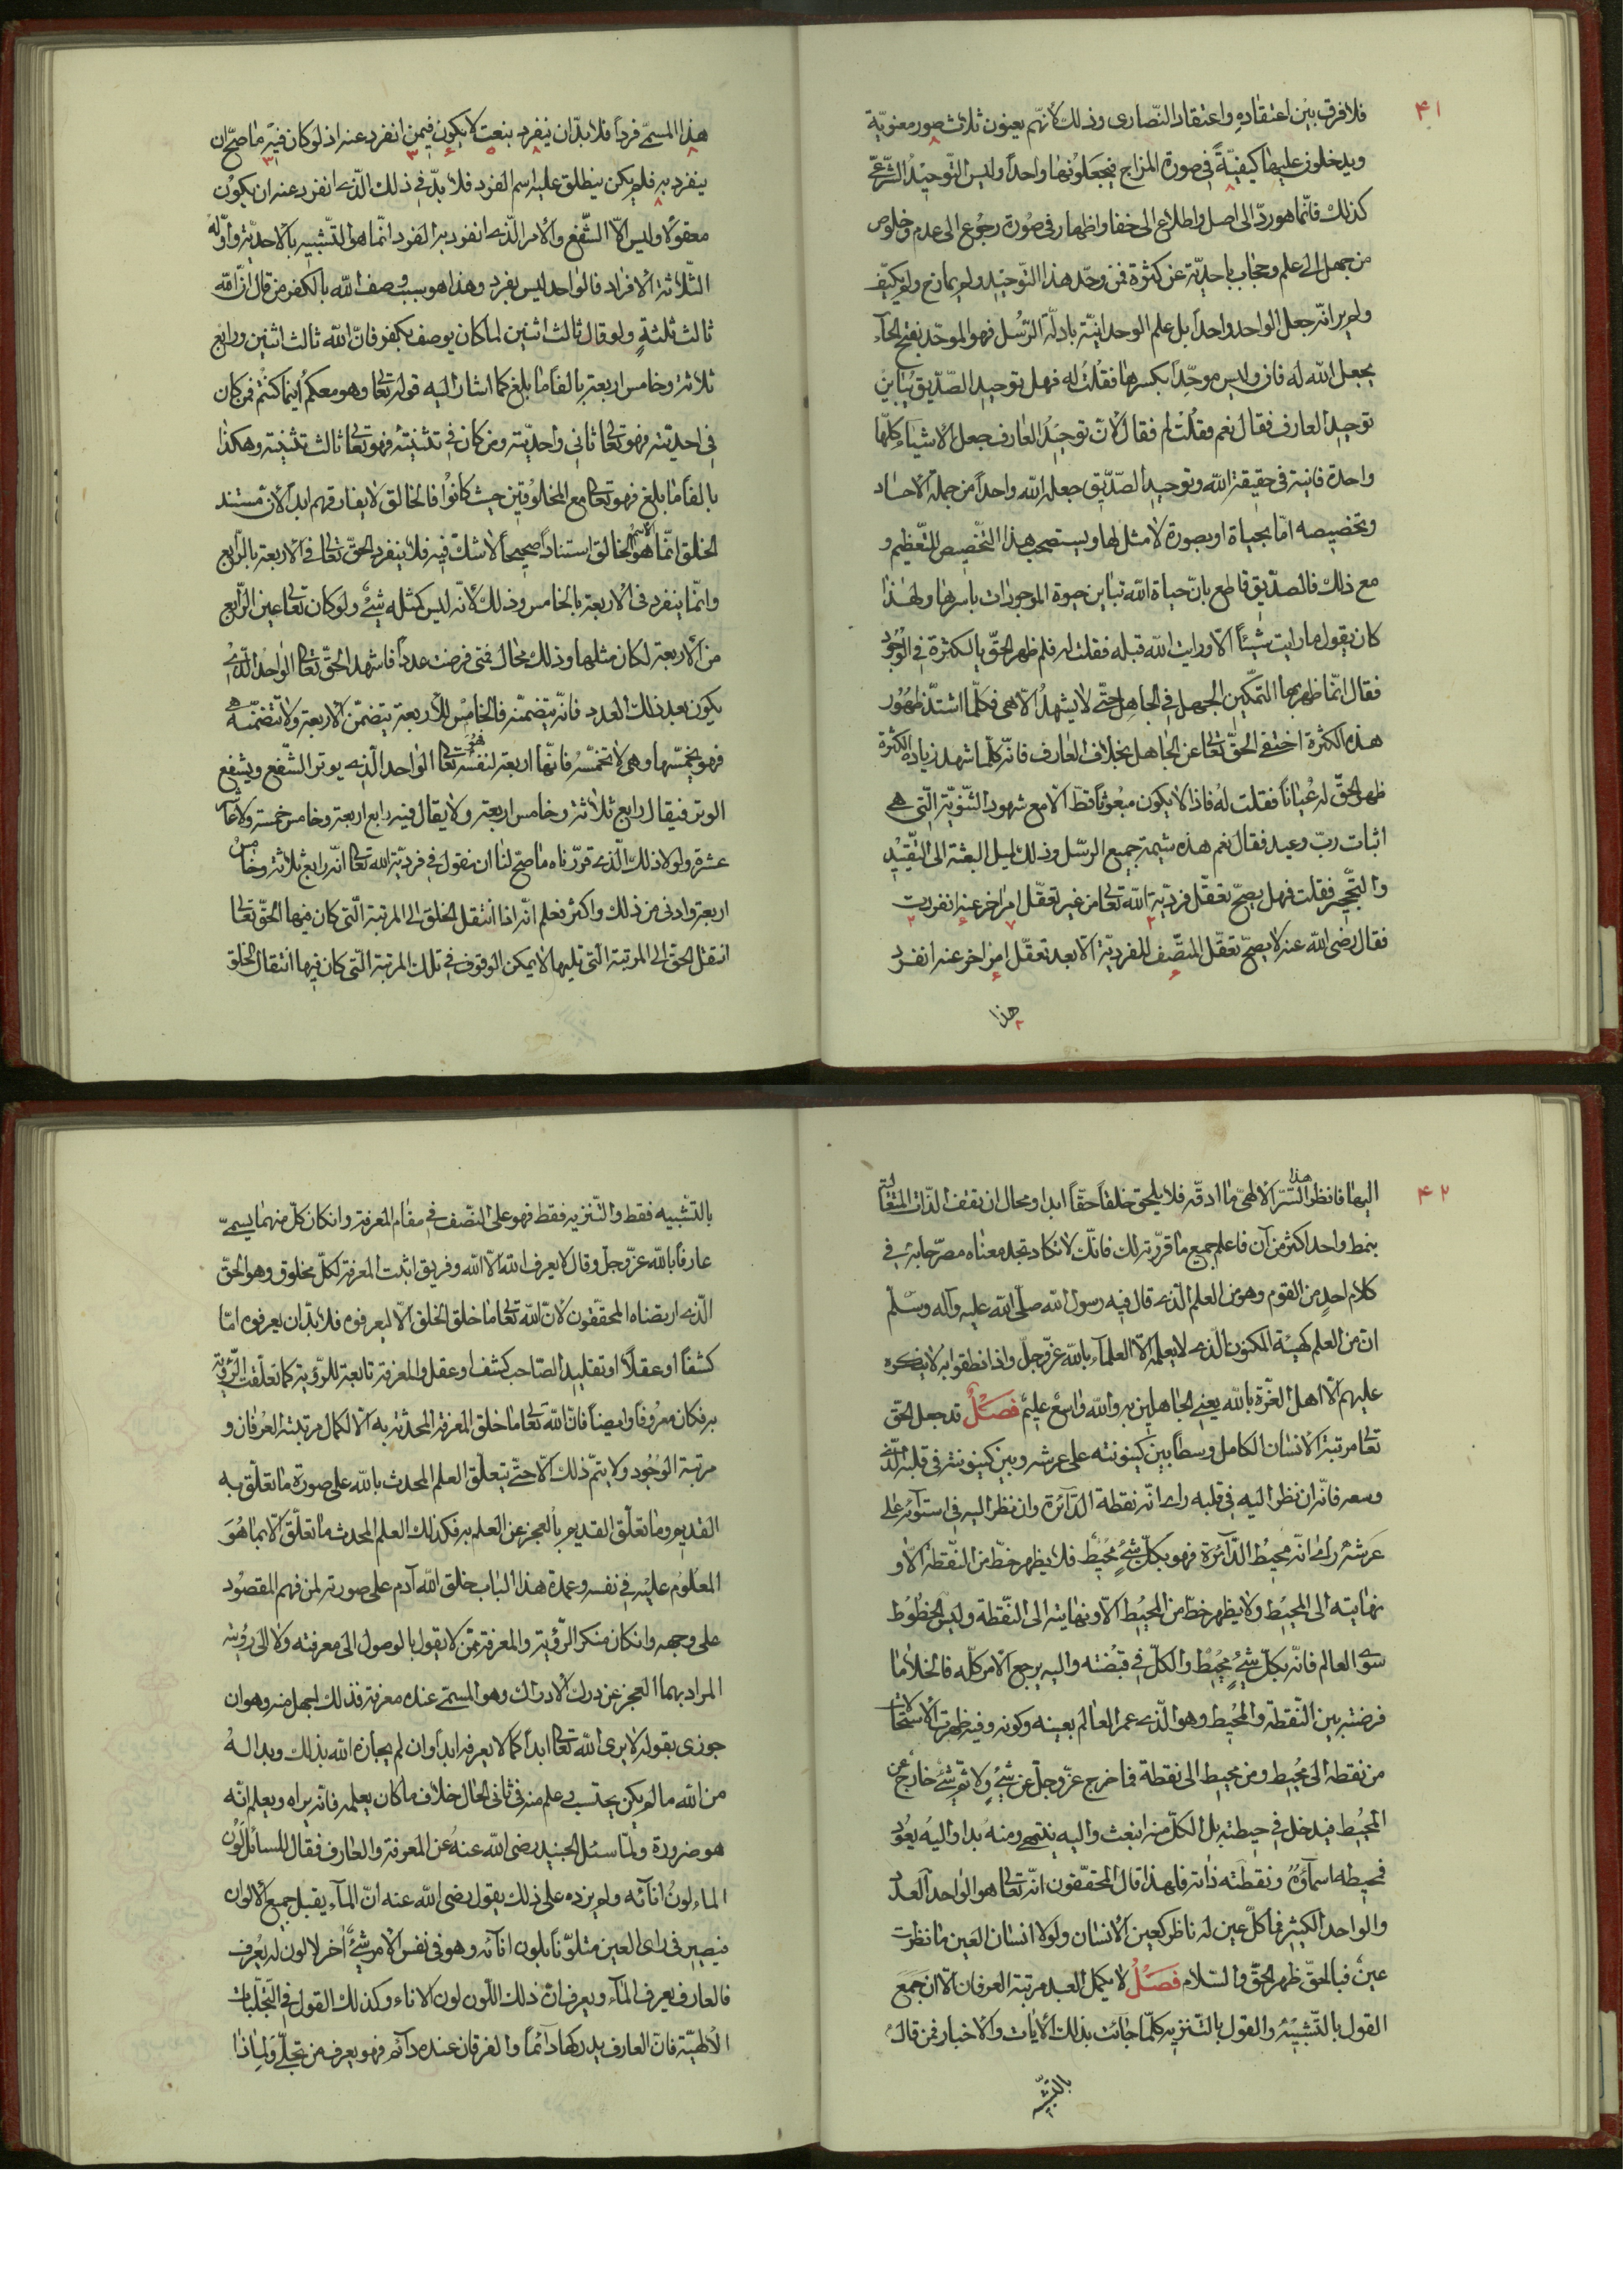 ۴۱
فلا فرق بين اعتقاده واعتقاد النّصارى وذلك لأنّهم يعنون ثلاث صور معنويّة
ويدخلون عليها كيفيّةً في صورة المزاج فيجعلونها واحداً وليس التّوحيد الشّرعي
كذلك فانّما هو ردّ الى اصل واطلاع الى خفا واظهار في صورة رجوع الى عدم وخلوص
من جهل الى علم وحجاب باحديّة عن كثرة فمن وحّد هذا التّوحيد ولم يمازج ولم يكيّف
ولم ير انّه جعل الواحد واحداً بل علم الوحدانيّة بادلّة الرّسل فهو الموحّد بفتح الحآء
بجعل الله له فان وليس موحّداً بكسرها فقلت له فهل توحيد الصّدّيق يباين
توحيد العارف فقال نعم فقلت لم فقال لانّ توحيد العارف جعل الاشياء كلّها
واحدة فانية في حقيقة الله وتوحيد الصّدّيق جعل الله واحداً من جملة الاحاد
وتخصيصه امّا بحياة او بصورة لا مثل لها ويستصحب هذا التّخصيص للتّعظيم و
مع ذلك فالصّدّيق قاطع بانّ حياة الله تباين حيوة الموجودات باسرها ولهذا
كان يقول ما رايت شيئاً الّا ورايت الله قبله فقلت له فلم ظهر الحقّ بالكثرة في الوجود
فقال انّما ظهر بها لتمكين الجهل في الجاهل حتّى لا يشهد الّا هي فكلّما اشتدّ ظهور
هذه الكثرة اختفى الحقّ تعالى عن الجاهل بخلاف العارف فانّه كلّما شهد زيادة الكثرة
ظهر الحقّ له عياناً فقلت له فاذا لا يكون مبعوثاً قطّ الّا مع شهود الثّنويّة الّتي هي
اثبات ربّ وعبد فقال نعم هذه شيمة جميع الرّسل وذلك لميل البعثة الى التّقييد
والتّحجير فقلت فهل يصحّ تعقّل فرديّة الله تعالى من غير تعقّل امر اخر عنه انفردت
فقال رضى الله عنه لا يصحّ تعقّل المتّصف للفرديّة الّا بعد تعقّل امر اخر عنه انفرد
هذا
هذا المسمّى فرداً فلا بدّ ان ينفرد بنعت لا يكون فيمن انفرد عنه اذ لو كان فيه ما صحّ ان
ينفرد به فلم يكن ينطلق عليه اسم الفرد فلا بدّ في ذلك الّذي انفرد عنه ان يكون
معقولاً وليس الّا الشّفع والأمر الّذي انفرد به الفرد انّما هو التّشبيه بالاحديّة واوّله
الثّلاثة الافراد فالواحد ليس بفرد وهذا هو سبب وصف الله بالكفر من قال انّ الله
ثالث ثلثةٍ ولو قال ثالث اثنين لما كان يوصف بكفر فانّ الله ثالث اثنين ورابع
ثلاثة وخامس اربعة بالغاً ما بلغ كما اشار اليه قوله تعالى وهو معكم أينما كنتم فمن كان
في احديّته فهو تعالى ثاني واحديّته ومن كان في تثنيته فهو تعالى ثالث تثنيته وهكذا
بالغاً ما بلغ فهو تعالى مع المخلوقين حيث كانوا فالخالق لا يفارقهم ابداً لانّ مستند
الخلق انّما هو الاسم الخالق استناداً صحيحاً لا شك فيه فلا ينفرد الحقّ تعالى في الاربعة بالرّابع
وانّما ينفرد في الاربعة بالخامس وذلك لأنّه ليس كمثله شيء ولو كان تعالى عين الرّابع
من الأربعة لكان مثلها وذلك محال فمتى فرضت عدداً فاشهد الحقّ تعالى الواحد الّذي
يكون بعد ذلك العدد فانّه يتضمّنه فالخامس للأربعة يتضمّن الاربعة ولا تتضمّنه هي
فهو يخمّسها وهي لا تخمّسه فانّها اربعة لنفسه هو تعالى الواحد الّذي يوتر الشّفع ويشفع
الوتر فيقال رابع ثلاثة وخامس اربعة ولا يقال فيه رابع اربعة وخامس خمسة ولا عاشر
عشرة ولولا ذلك الّذي قرّرناه ما صحّ لنا ان نقول في فرديّة الله تعالى انّه رابع ثلاثة وخامس
اربعة وادنى من ذلك واكثر فعلم انّه اذا انتقل الخلق الى المرتبة الّتي كان فيها الحقّ تعالى
انتقل الحق الى المرتبة الّتي تليها لا يمكن الوقوف في تلك المرتبة الّتي كان فيها انتقال الخلق
۴۲
اليها فانظر هذا السّرّ الالهيّ ما ادقّه فلا يلحق خلقاً حقّاً ابدا ومحال ان تقف الذّات المتعالية
بنمط واحد اكثر من آن فاعلم جميع ما قرّرته لك فانّك لا تكاد تجد معناه مصرّحا به في
كلام احدٍ من القوم وهو من العلم الّذي قال فيه رسول الله صلّى الله عليه وآله وسلّم
انّ من العلم كهيئة المكنون الّذي لا يعلمه الّا العلمآء بالله عزّ وجلّ واذا نطقوا به لا ينكره
عليهم الّا اهل الغرّة بالله يعني الجاهلين به والله واسع عليم فصل قد جعل الحق
تعالى مرتبة الانسان الكامل وسطاً بين كينونته على عرشه وبين كينونته في قلبه الّذي
وسعه فانّه ان نظر اليه في قلبه راى انّه نقطة الدّائرة وان نظر اليه في استوائه على
عرشه راى انّه محيط الدّائرة فهو بكلّ شيء محيط فلا يظهر خطّ من النّقطة الّا و
نهايته الى المحيط ولا يظهر خطّ من المحيط الّا ونهايته الى النّقطة وليس الخطوط
سوى العالم فانّه بكلّ شيءٍ محيط والكلّ في قبضته واليه يرجع الامر كلّه فالخلأ ما
فرضته بين النّقطة والمحيط وهو الّذي عمر العالم بعينه وكونه وفيه ظهرت الاستحالات
من نقطة الى محيط ومن محيط الى نقطة فما خرج عزّ وجلّ عن شيءٍ ولا ثمّ شيء خارج عن
المحيط فيدخل في حيطته بل الكلّ منه انبعث واليه ينتهى ومنه بدا واليه يعود
فمحيطه اسمآؤه ونقطته ذاته فلهذا قال المحقّقون انّه تعالى هو الواحد العدد
والواحد الكثير فما كلّ عين له ناظر كعين الأنسان ولولا انسان العين ما نظرت
عين فبالحقّ ظهر الحقّ والسّلام فصل لا يكمل العبد مرتبة العرفان الّا ان جمع
القول بالتّشبيه والقول بالتّنزيه كلّما جائت بذلك الايات والاخبار فمن قال
بالتّشبيه
بالتّشبيه فقط والتّنزيه فقط فهو على النّصف في مقام المعرفة وان كان كلّ منهما يسمّى
عارفاً بالله عزّ وجلّ وقال لا يعرف الله الّا الله وفريق اثبت المعرفة لكلّ مخلوق وهو الحقّ
الّذي ارتضاه المحقّقون لانّ الله تعالى ما خلق الخلق الّا ليعرفوه فلا بدّ ان يعرفوه امّا
كشفاً او عقلاً او تقليد الصّاحب كشف او عقل والمعرفة تابعة للرّؤية كما تعلّقت الرّؤية
به فكان معروفاً وايضاً فانّ الله تعالى ما خلق المعرفة المحدثة به الّا لكمال مرتبة العرفان و
مرتبة الوجود ولا يتمّ ذلك الّا حتّى يتعلّق العلم المحدث بالله على صورة ما تعلّق به
القديم وما تعلّق القديم بالعجز عن العلم به فكذلك العلم المحدث ما تعلّق الّا بما هو
المعلوم عليه في نفسه وعمدة هذا الباب خلق الله آدم على صورته لمن فهم المقصود
على وجهه وان كان منكر الرّؤية والمعرفة ممّن لا يقول بالوصول الى معرفته ولا الى رؤيته
المراد بهما العجز عن درك الأدراك وهو المسمّى عنده معرفة فذلك اجهل منه وهو ان
جوزى بقوله لا يرى الله تعالى ابداً كما لا يعرفه ابدا وان لم يجازه الله بذلك وبدا له
من الله ما لم يكن يحتسب علم منه في ثاني الحال خلاف ما كان يعلمه فانّه يراه ويعلم انّه
هو ضرورة ولمّا سئل الجنيد رضى الله عنه عن المعرفة والعارف فقال للسائل لون
الماء لون انائه ولم يزده على ذلك يقول رضى الله عنه انّ المآء يقبل جميع الألوان
فيصير في راى العين متلوّناً بلون انائه وهو في نفس الأمر شيء أخر لا لون له يعرف
فالعارف يعرف المآء ويعرف انّ ذلك اللّون لون الاناء وكذلك القول في التّجلّيات
الألهيّة فانّ العارف يدركها دائماً والفرقان عنده دآئم فهو يعرف من تجلّى ولماذا